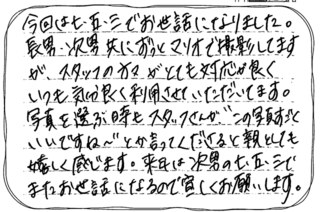 今回は七・五・三でお世話になりました。
長男・次男共にずっとマリオで撮影してます
が、スタッフの方々がとても対応が良く
いつも気分良く利用させていただいてます。
写真を選ぶ時もスタッフさんが“この写真すごく
いいですね～”とか言ってくださると親としても
嬉しく感じます。来年は次男の七・五・三で
またお世話になるので宜しくお願いします。